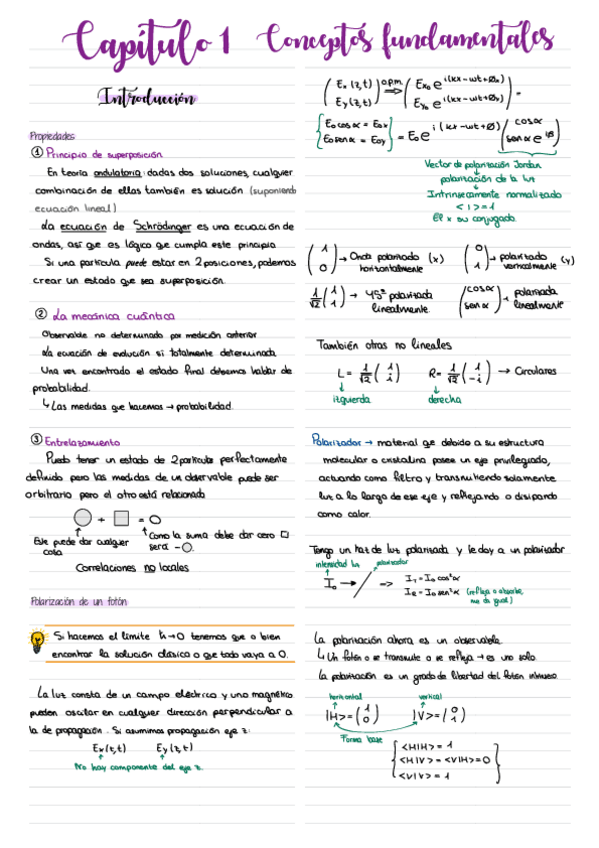 Capítulo 1 Conceptos fundamentales
Introducción
Propiedades
① Principio de superposición
En teoría ondulatoria: dadas dos soluciones, cualquier
combinación de ellas también es solución (suponiendo
ecuación lineal)
La ecuación de Schrödinger es una ecuación de
ondas, así que es lógico que cumpla este principio
Si una partícula puede estar en 2 posiciones, podemos
crear un estado que sea superposición.
② La mecánica cuántica
Observable no determinado por medición anterior
La ecuación de evolución si totalmente determinada
Una vez encontrado el estado final debemos hablar de
probabilidad.
↳ Las medidas que hacemos → probabilidad.
③ Entrelazamiento
Puedo tener un estado de 2 partículas perfectamente
definido pero las medidas de un observable puede ser
arbitrario pero el otro está relacionado
○ + □ = 0
Este puede dar cualquier cosa
Como la suma debe dar cero □ será -○.
Correlaciones no locales
Polarización de un fotón
Si hacemos el límite ħ→0 tenemos que o bien
encontrar la solución clásica o que todo vaya a 0.
La luz consta de un campo eléctrico y uno magnético
pueden oscilar en cualquier dirección perpendicular a
la de propagación. Si asumimos propagación eje z:
Ex(z,t) Ey(z,t)
No hay componente del eje z.
(Ex(z,t) Ey(z,t)) o.p.m. ⇒ (Ex₀ e^i(kx-wt+Øx) Ey₀ e^i(kx-wt+Øx)) =
{E₀cosα = E₀x E₀senα = E₀y} = E₀e^i(kx-wt+Ø) (cosα senα e^iβ)
Vector de polarización Jordan
polarización de la luz
Intrínsecamente normalizado
<|>=1
El x su conjugado
(1 0) → Onda polarizada horizontalmente (x) (0 1) → polarizado verticalmente (y)
1/√2 (1 1) → 45º polarizada linealmente. (cosα senα) → polarizada linealmente
También otras no lineales
L = 1/√2 (1 i) R = 1/√2 (1 -i) → Circulares
izquierda derecha
Polarizador → material que debido a su estructura
molecular o cristalina posee un eje privilegiado,
actuando como filtro y transmitiendo solamente
luz a lo largo de ese eje y reflejando o disipando
como calor.
Tengo un haz de luz polarizada y le doy a un polarizador
intensidad luz polarizador
I₀ → / => I_T = I₀ cos²α
I_R = I₀ sen²α (refleja o absorbe, me da igual)
La polarización ahora es un observable.
↳ Un fotón o se transmite o se refleja → es uno solo.
La polarización es un grado de libertad del fotón
horizontal vertical
|H>=(1 0) |V>=(0 1)
Forma base
<H|H> = 1
<H|V> = <V|H> = 0
<V|V> = 1